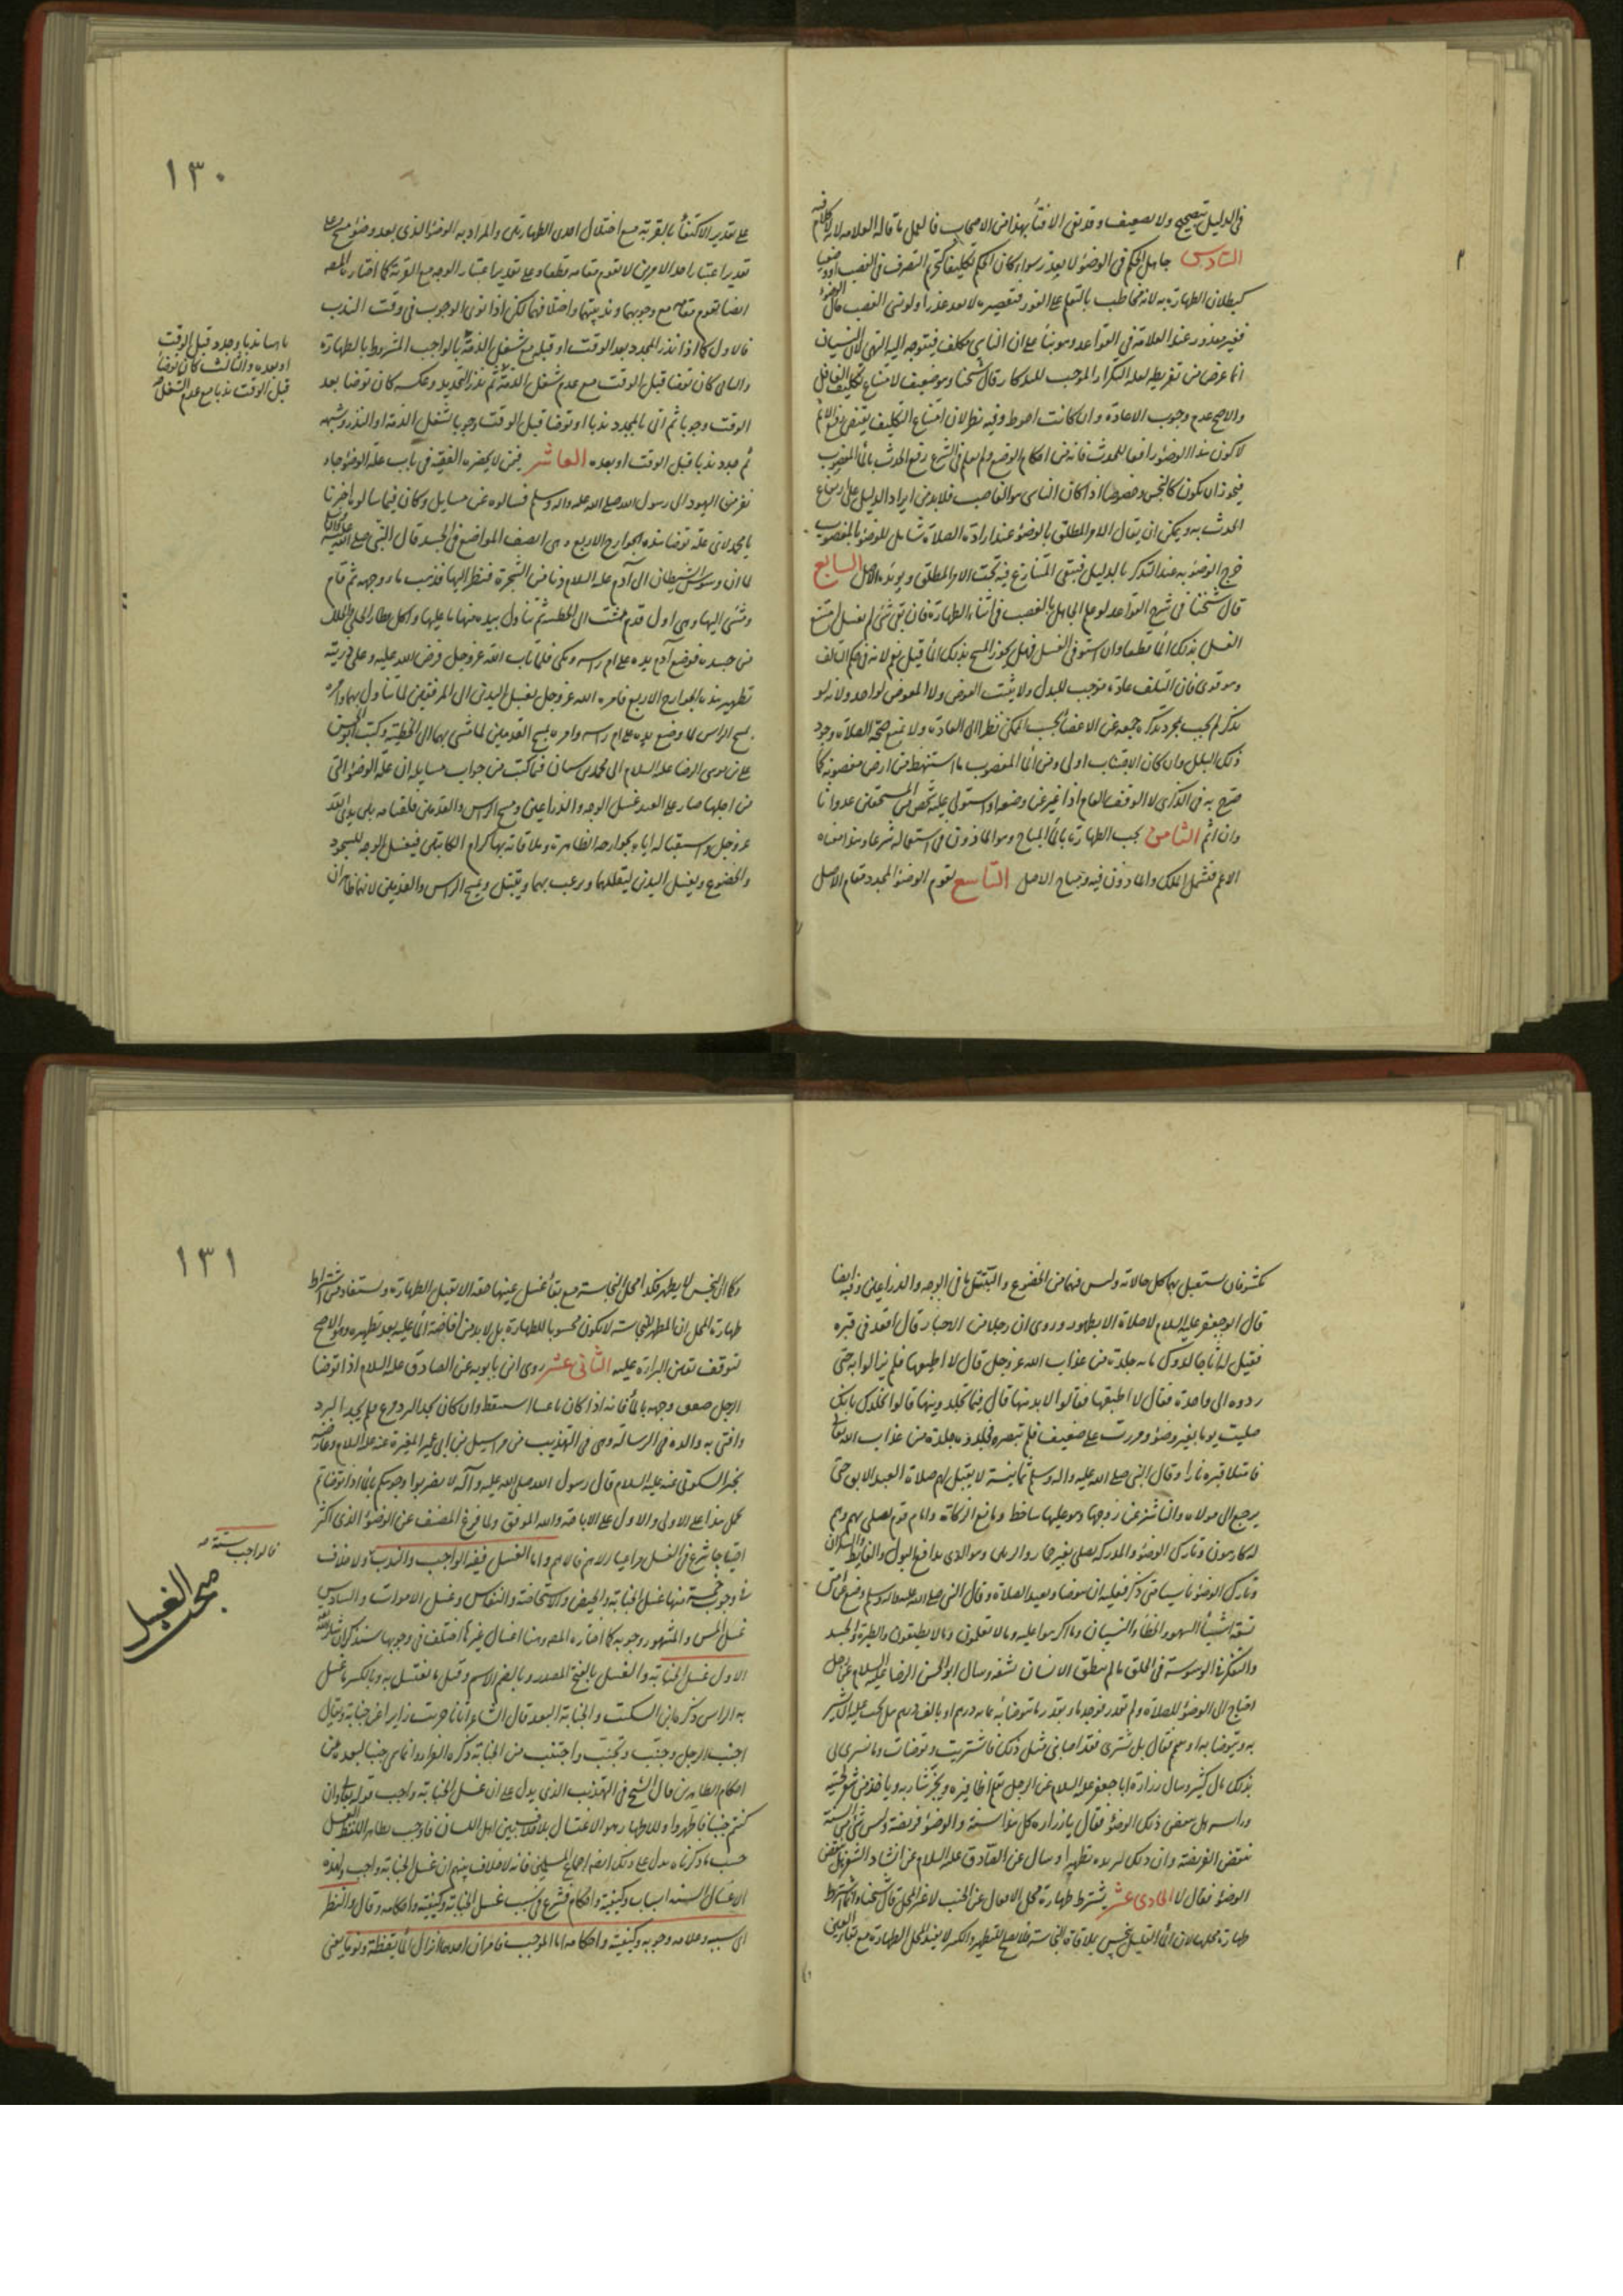 في الدليل بتصحيح ولا تضعيف وقد نفى الافتاء بهذا من الاصحاب فالعمل ما قاله العلامة
السادس جاهل الحكم في الوضوء لا يعذر سواء كان الحكم تكليفا كتحريم التصرف في الغصب او وضعيا
كبطلان الطهارة به لانه مخاطب بالتعلم على الفور فتقصيره لا يعد عذرا ولو نسي الغصب حال الوضوء
فغير معذور عند العلامة في القواعد وهو بناء على ان الناسي مكلف فيتوجه اليه النهي لان النسيان
انما عرض من تفريطه لعدم التكرار الموجب للتذكار قال شيخنا وهو ضعيف لامتناع تكليف الغافل
والاصح عدم وجوب الاعادة وان كانت احوط وفيه نظر لان امتناع التكليف يقتضي رفع الاثم
لا كون هذا الوضوء رافعا للحدث فانه من احكام الوضع ولم يعلم في الشرع رفع الحدث بالماء المغصوب
فيجوز ان يكون كالنجس وخصوصا اذا كان الناسي هو الغاصب فلا بد من ايراد الدليل على ارتفاع
الحدث به ويمكن ان يقال الامر المطلق بالوضوء عند ارادة الصلاة شامل للوضوء بالمغصوب
خرج الوضوء به عند التذكر بالدليل فيبقى المتنازع فيه تحت الامر المطلق ويؤيده الاصل السابع
قال شيخنا في شرح القواعد لو علم الجاهل بالغصب في اثناء الطهارة فان بقي شيء لم يغسل امتنع
الغسل بذلك الماء قطعا وان استوفى الغسل فهل يجوز المسح بذلك الماء قيل نعم لانه في حكم التالف
وهو قوي فان التلف عادة موجب للبدل ولا يثبت العوض والمعوض لواحد ولانه لو
تذكر لم يجب بمجرد تذكره جمعه عن الاعضاء بحسب الممكن نظرا الى العادة ولا تمنع صحة الصلاة وجود
ذلك البلل وان كان الاجتناب اولى ومن الماء المغصوب ما استنبط من ارض مغصوبة كما
صرح به في الذكرى لا الوقف العام اذا غير عن وضعه او استولى عليه شخص من المستحقين عدوانا
وان اثم الثامن يجب الطهارة بالماء المباح وهو الماذون في استعماله شرعا وهذا معناه
الاعم فيشمل الملك والماذون فيه ومباح الاصل التاسع يقوم الوضوء المجدد مقام الاصل
١٣٠
على تقدير الاكتفاء بالقربة مع اختلال احدى الطهارتين والمراد به الوضوء الذي بعد وضوء صحيح وعلى
تقدير اعتبار احد الامرين لا تقوم مقامه قطعا وعلى تقدير اعتبار الوجه مع القربة كما اختاره المصه
ايضا يقوم مقامه مع وجوبهما وندبيتهما واختلافهما لكن اذا نوى الوجوب في وقت الندب
فالاول كما اذا نذر المجدد بعد الوقت او قبله مع شغل الذمة بالواجب المشروط بالطهارة
والثاني كان توضا قبل الوقت مع عدم شغل الذمة ثم نذر التجديد وعكسه كان توضا بعد
الوقت وجوبا ثم اتى بالمجدد ندبا او توضا قبل الوقت وجوبا لشغل الذمة او النذر وشبهه
ثم جدد ندبا قبل الوقت او بعده العاشر فيمن لا يحضره الفقيه في باب علة الوضوء جاء
نفر من اليهود الى رسول الله صلى الله عليه واله وسلم فسالوه عن مسايل وكان فيما سالوه اخبرنا
يا محمد لاي علة توضا هذه الجوارح الاربع وهي انظف المواضع في الجسد قال النبي صلى الله عليه واله
لما ان وسوس الشيطان الى آدم عليه السلام دنا من الشجرة فنظر اليها فذهب ماء وجهه ثم قام
ومشى اليها وهي اول قدم مشت الى الخطيئة ثم تناول بيده منها ما عليها واكل فطار الحلي والحلل
من جسده فوضع آدم يده على ام راسه وبكى فلما تاب الله عز وجل فرض الله عليه وعلى ذريته
تطهير هذه الجوارح الاربع فامره الله عز وجل بغسل اليدين الى المرفقين لما تناول بهما وامره
بمسح الراس لما وضع يده على ام راسه وامره بمسح القدمين لما مشى بهما الى الخطيئة وكتب ابو الحسن
علي بن موسى الرضا عليه السلام الى محمد بن سنان فيما كتب من جواب مسايله ان علة الوضوء التي
من اجلها صار على العبد غسل الوجه والذراعين ومسح الراس والقدمين فلقيامه بين يدي الله
عز وجل واستقباله اياه بجوارحه الظاهرة وملاقاته بها الكرام الكاتبين فيغسل الوجه للسجود
والخضوع ويغسل اليدين ليقلبهما ويرغب بهما ويتبتل ويمسح الراس والقدمين لانهما ظاهران
قبل الوقت ندبا مع عدم الشغل
مكشوفان يستقبل بهما كل حالاته وليس فيهما من الخضوع والتبتل ما في الوجه والذراعين وفيه ايضا
قال ابو جعفر عليه السلام لا صلاة الا بطهور وروى ان رجلا من الاحبار اقعد في قبره
فقيل له انا جالدوك مائة جلدة من عذاب الله عز وجل قال لا اطيقها فلم يزالوا به حتى
ردوه الى واحدة فقال لا اطيقها فقالوا لا بد منها قال فيما تجلدونيها قالوا نجلدك بانك
صليت يوما بغير وضوء ومررت على ضعيف فلم تنصره فجلدوه جلدة من عذاب الله تعالى
فامتلا قبره نارا وقال النبي صلى الله عليه واله وسلم ثمانية لا يقبل لهم صلاة العبد الابق حتى
يرجع الى مولاه والناشز عن زوجها وهو عليها ساخط ومانع الزكاة وامام قوم يصلي بهم وهم
له كارهون وتارك الوضوء والمدركة تصلي بغير خمار والزنين وهو الذي يدافع البول والغايط والسكران
وتارك الوضوء ناسيا متى ذكر فعليه ان يتوضا ويعيد الصلاة وقال النبي صلى الله عليه واله وسلم وضع عن امتي
تسعة اشياء السهو والخطاء والنسيان وما اكرهوا عليه وما لا يعلمون وما لا يطيقون والطيرة والحسد
والتفكر في الوسوسة في الخلق ما لم ينطق الانسان بشفة وسال ابو الحسن الرضا عليه السلام عن رجل
احتاج الى الوضوء للصلاة ولم يقدر فوجد ماء بقدر ما يتوضا به بمائة درهم او بالف درهم هل يجب عليه ان يشتري
به ويتوضا به او يتيمم فقال بل يشتري فقد اصابني مثل ذلك فاشتريت وتوضات وما يسرني
بذلك مال كثير وسال زرارة ابا جعفر عليه السلام عن الرجل يقلم اظافيره ويجز شاربه وياخذ من شعر لحيته
وراسه هل ينقض ذلك الوضوء فقال يا زرارة كل هذا سنة والوضوء فريضة وليس شيء من السنة
ينقض الفريضة وان ذلك ليزيده تطهيرا وسال عن الصادق عليه السلام عن انشاد الشعر هل ينقض
الوضوء فقال لا الحادي عشر يشترط طهارة محل الافعال عن الخبث لا غير المحل قال شيخنا وانما اشترط
طهارة محلها لان الماء القليل ينجس بملاقاة النجاسة فلا يصلح للتطهير والكثير لا يفيد المحل الطهارة مع بقاء العين
١٣١
وكما ان النجس لا يطهر فكذا محل النجاسة مع بقاء غسل عينها معه لا يقبل الطهارة ويستفاد من اشتراط
طهارة المحل ان المطهر للنجاسة لا يكون محسوبا للطهارة بل لا بد من افاضة الماء عليه بعد تطهيره وهو الاصح
لتوقف يقين البراءة عليه الثاني عشر روى ابن بابويه عن الصادق عليه السلام اذا توضا
الرجل صفق وجهه بالماء فانه اذا كان ناعسا استيقظ وان كان يجد البرد فزع فلم يجد البرد
وافتى به والده في الرسالة وهي في التهذيب من مراسيل ابن المغيرة عنه عليه السلام وعارضه
بخبر السكوني عنه عليه السلام قال رسول الله صلى الله عليه وآله لا تضربوا وجوهكم بالماء اذا توضاتم
حمل هذا على الاولى والاول على الاباحة والله الموفق ولما فرغ المصنف عن الوضوء الذي اكثر
احتياجا شرع في الغسل واما الغسل فيه الواجب والندب ولا خلاف
في وجوب خمسة منها غسل الجنابة والحيض والاستحاضة والنفاس وغسل الاموات والسادس
غسل المس والمشهور وجوبه كما اختاره المصه وهنا اغسال غيرها اختلف في وجوبها سنذكر ان شاء الله
الاول غسل الجنابة والغسل بالفتح المصدر وبالضم الاسم وقيل ما يغتسل به وبالكسر ما يغسل
به الراس ذكره ابن السكيت والجنابة البعد قال الشاعر اتانا حريث زايرا عن جنابة ويقال
اجنب الرجل وجنب وتجنب واجتنب من الجنابة ذكره الفراء وانما سمي جنبا لبعده عن
احكام الطاهرين قال الشيخ في التهذيب الذي يدل على ان غسل الجنابة واجب قوله تعالى وان
كنتم جنبا فاطهروا والاطهار هو الاغتسال بلا خلاف بين اهل اللسان فاوجب بظاهر اللفظ الغسل
حسب ما ذكرناه يدل على ذلك ايضا اجماع المسلمين فانه لا خلاف بينهم ان غسل الجنابة واجب ولهذه
الاغسال الستة اسباب وكيفية واحكام فشرع في سبب غسل الجنابة وكيفيته واحكامه وقال والنظر
في سببه وعلامة وجوبه وكيفيته واحكامه اما الموجب فامران احدهما انزال الماء يقظة ونوما يعني
فالواجب ستة
مبحث الغسل